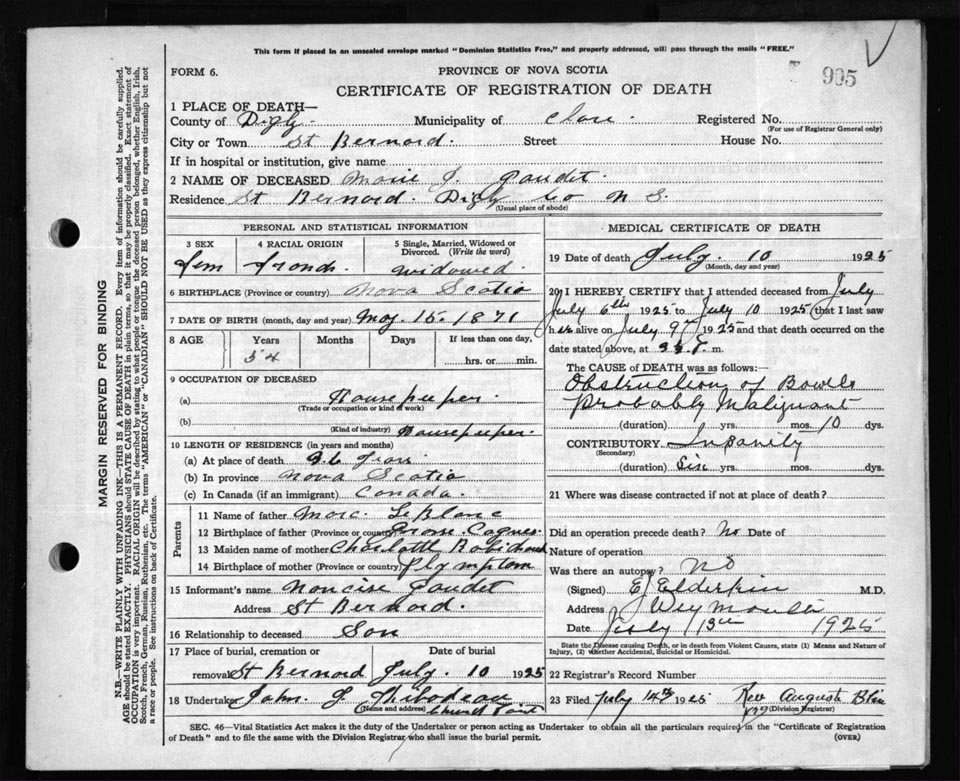 This form if placed in an unsealed envelope marked "Dominion Statistics Free," and properly addressed, will pass through the mails "FREE."
FORM 6.
PROVINCE OF NOVA SCOTIA
905
CERTIFICATE OF REGISTRATION OF DEATH
1 PLACE OF DEATH—
County of Digby Municipality of Clare Registered No.
(For use of Registrar General only)
City or Town St Bernard. Street House No.
If in hospital or institution, give name
2 NAME OF DECEASED Marie J. Gaudet.
Residence St Bernard. Digby Co N S.
(Usual place of abode)
PERSONAL AND STATISTICAL INFORMATION
3 SEX
Fem
4 RACIAL ORIGIN
French.
5 Single, Married, Widowed or Divorced. (Write the word)
Widowed.
6 BIRTHPLACE (Province or country) Nova Scotia
7 DATE OF BIRTH (month, day and year) May 15. 1871
8 AGE Years Months Days If less than one day,
54 hrs. or min.
9 OCCUPATION OF DECEASED
(a) Housekeeper.
(Trade or occupation or kind of work)
(b) Housekeeper.
(Kind of industry)
10 LENGTH OF RESIDENCE (in years and months)
(a) At place of death
(b) In province Nova Scotia
(c) In Canada (if an immigrant) Canada.
Parents
11 Name of father Marc. LeBlanc
12 Birthplace of father (Province or country)
13 Maiden name of mother Charlotte Robichaud
14 Birthplace of mother (Province or country) Plympton
15 Informant's name Narcise Gaudet
Address St Bernard.
16 Relationship to deceased Son
17 Place of burial, cremation or removal Date of burial
St Bernard July. 10 1925
18 Undertaker John. L Thibodeau
(Name and address) Church Point
MEDICAL CERTIFICATE OF DEATH
19 Date of death July. 10 1925
(Month, day and year)
20 I HEREBY CERTIFY that I attended deceased from July
July 6th 1925 to July 10 1925 (that I last saw
h alive on July 9th 1925 and that death occurred on
date stated above, at m.
The CAUSE of DEATH was as follows:
Obstruction of Bowels
Probably Malignant
(duration) yrs. mos. 10 dys.
CONTRIBUTORY Insanity
(Secondary)
(duration) Six yrs. mos. dys.
21 Where was disease contracted if not at place of death?
Did an operation precede death? No Date of
Nature of operation
Was there an autopsy? No
(Signed) E Elderkin M.D.
Address Weymouth
Date July 13th 1925
State the Disease causing Death, or in death from Violent Causes, state (1) Means and Nature of Injury, (2) whether Accidental, Suicidal or Homicidal.
22 Registrar's Record Number
23 Filed July 14th 1925 Rev Auguste Blin
(Division Registrar)
SEC. 46—Vital Statistics Act makes it the duty of the Undertaker or person acting as Undertaker to obtain all the particulars required in the "Certificate of Registration
of Death" and to file the same with the Division Registrar who shall issue the burial permit. (OVER)
MARGIN RESERVED FOR BINDING
N.B.—WRITE PLAINLY WITH UNFADING INK—THIS IS A PERMANENT RECORD. Every item of information should be carefully supplied.
AGE should be stated EXACTLY. PHYSICIANS should STATE CAUSE OF DEATH in plain terms, so that it may be properly classified. Exact statement of
OCCUPATION is very important. RACIAL ORIGIN will be described by stating to what people or tongue the deceased person belonged, whether English, Irish,
Scotch, French, German, Russian, Ruthenian, etc. The terms "AMERICAN" or "CANADIAN" SHOULD NOT BE USED as they express citizenship but not
a race or people. See instructions on back of Certificate.